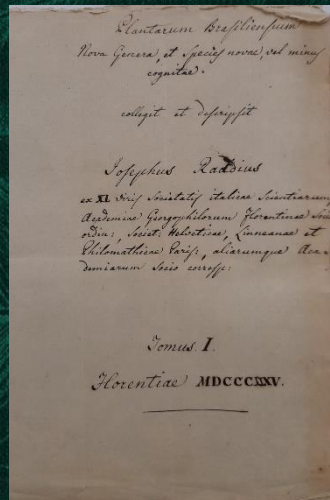 Plantarum Brasiliensium
Nova Genera, et Species novae, vel minus
cognitae.
collegit et descripsit
Josephus Raddius
ex XL Viris Societatis italicae Scientiarum,
Academiae Georgophilorum Florentinae Soc:
ordin:, Societ: Helveticae, Linneanae et
Philomathicae Paris:, aliarumque Aca-
demiarum Socio corresp:
Tomus I.
Florentiae MDCCCXXV.